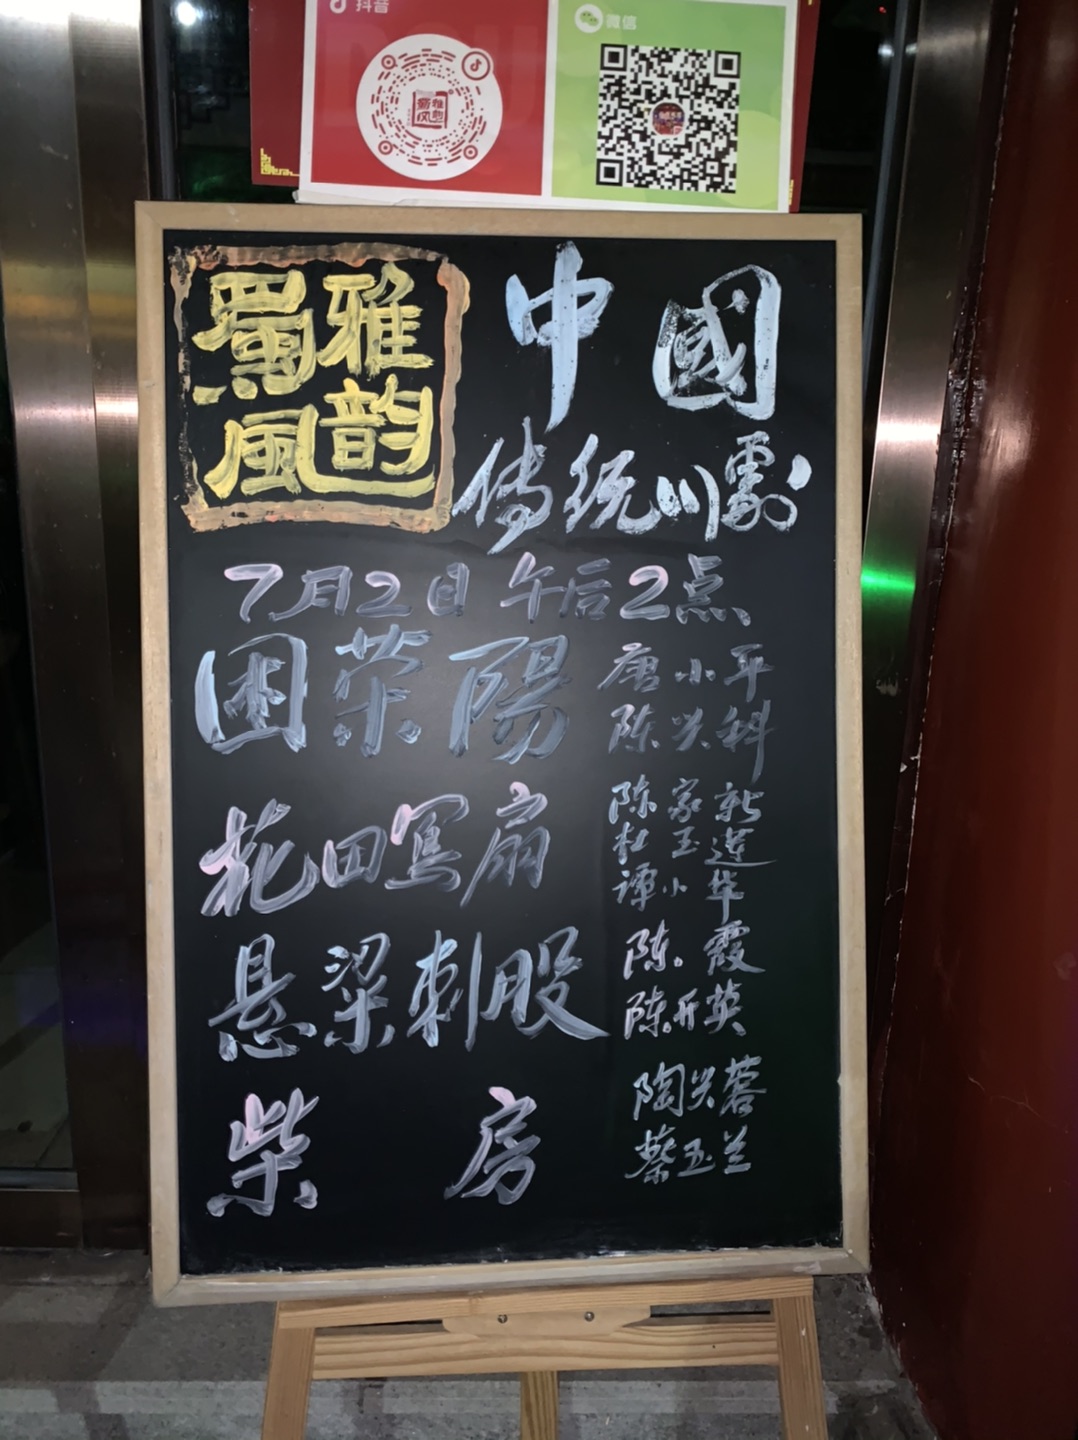 抖音
微信
蜀風雅韵
中國
传统川劇
7月2日 午后2点
困荣陽
唐小平
陈兴科
花田写扇
陈家新
杜玉莲
谭小华
悬梁刺股
陈霞
陈开英
柴房
陶兴蓉
蔡玉兰